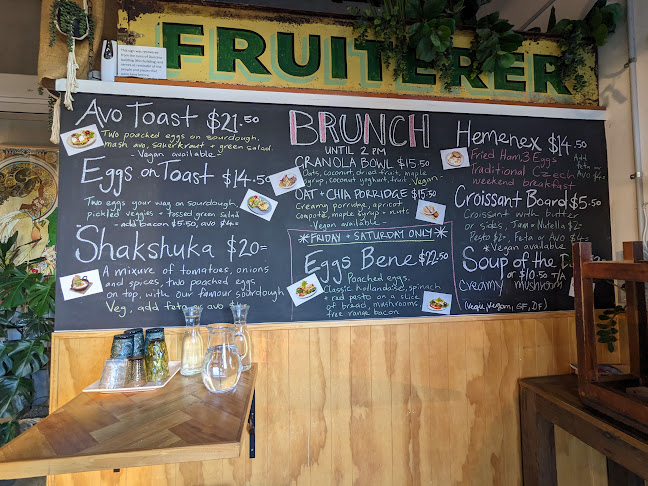 FRUITERER
Avo Toast $21.50
Two poached eggs on sourdough,
mash avo, sauerkraut + green salad.
- Vegan available -
Eggs on Toast $14.50
Two eggs your way on sourdough
pickled veggies + tossed green salad
- add bacon $5.50, avo $4.-
Shakshuka $20=
A mixture of tomatoes, onions
and spices, two poached eggs
on top, with our famour sourdough
Veg, add feta or avo
BRUNCH
UNTIL 2 PM
GRANOLA BOWL $15.50
Oats, coconut, dried fruit, maple
syrup, coconut yoghurt, fruit - Vegan -
OAT + CHIA PORRIDGE $15.50
Creamy porridge, apricot
compote, maple syrup + nuts
- Vegan available
*FRIDAY + SATURDAY ONLY*
Eggs Bene $22.50
Poached eggs,
Classic hollandaise, spinach
+ red pesto on a slice
of bread, mushrooms
free range bacon
Hemenex $14.50
Fried Ham, 3 Eggs
traditional Czech
weekend breakfast
Add
Avo $4.-
Croissant Board $5.50
Croissant with butter
or sides, Jam + Nutella $2-
Pesto $2-, Feta or Avo $4-
*Vegan available
Soup of the
or $10.50 T/A
Creamy mushroom
(Veggie, Vegan, GF, DF)